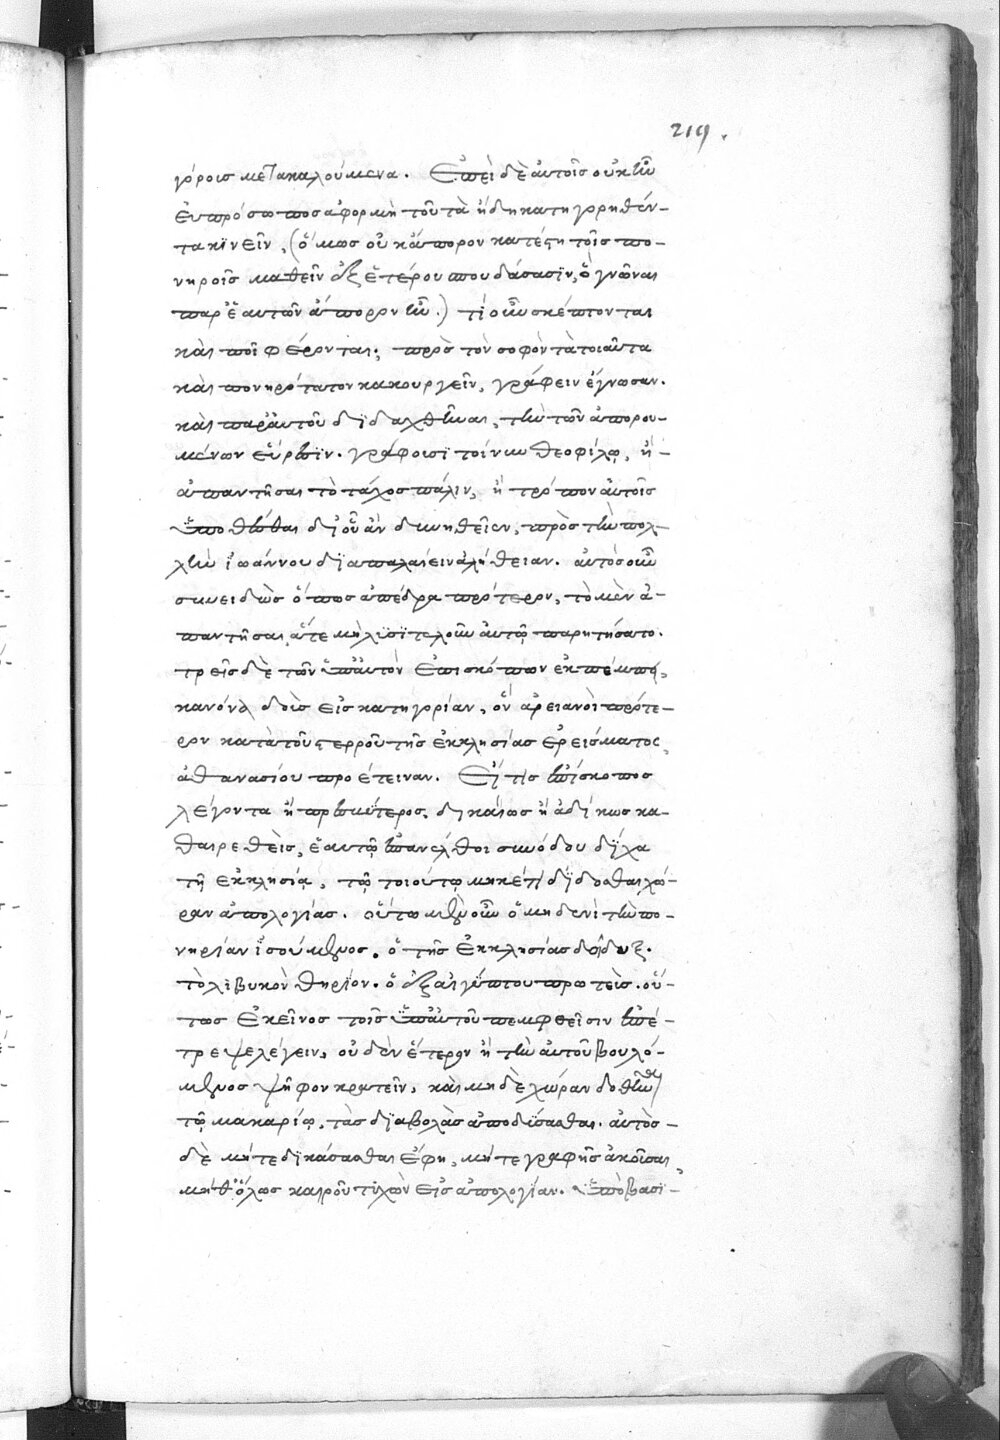 219.
γόροις μετακαλούμενα. Ἐπεὶ δὲ αὐτοῖς οὐκ ἦν
εὐπρόσωπος ἀφορμὴ τοῦ τὰ ἤδη κατηγορηθέν-
τα κινεῖν, (ὅμως οὐκ ἄπορον κατέστη τοῖς πο-
νηροῖς μαθεῖν ἐξ ἑτέρου σπουδάσασϊν, ὃ γνῶναι
παρ' ἑαυτῶν ἄπορον ἦν.) τί οὖν σκέπτονται
καὶ ποῖ φέρονται; πρὸς τὸν σοφὸν τὰ τοιαῦτα
καὶ πονηρότατον κακουργεῖν, γράφειν ἔγνωσαν.
καὶ παρ' αὐτοῦ διδαχθῆναι, τὴν τῶν ἀπορου-
μένων εὕρεσϊν. γράφουσϊ τοίνυν θεοφίλῳ, ἢ-
ἀπαντῆσαι τὸ τάχος πάλιν, ἢ τρόπον αὐτοῖς
ὑποθέσθαι δι' οὗ ἂν δυνηθεῖεν, πρὸς τὴν πολ-
λὴν ἰωάννου διαπαλαίειν ἀλήθειαν. αὐτὸς οὖν
συνειδὼς ὅπως ἀπέδρα πρότερον, τὸ μὲν ἀ-
παντῆσαι ἅτε μὴ λυσϊτελοῦν αὐτῷ παρῃτήσατο.
τρεῖς δὲ τῶν ὑπ' αὐτὸν ἐπισκόπων ἐκπέμπει,
κανόνα δοὺς εἰς κατηγορίαν, ὃν ἀρειανοὶ πρότε-
ρον κατὰ τοῦ στερροῦ τῆς ἐκκλησίας ἐρείσματος,
ἀθανασίου προέτειναν. Εἴ τις ἐπίσκοπος
λέγοντα ἢ πρεσβύτερος, δικαίως ἢ ἀδίκως κα-
θαιρεθεὶς, ἑαυτῷ ἐπανέλθοι συνόδου δίχα
τῇ ἐκκλησίᾳ, τῷ τοιούτῳ μηκέτι δίδοσθαι χώ-
ραν ἀπολογίας. οὕτω μὲν οὖν ὁ μηδενὶ τὴν πο-
νηρίαν ἰσούμενος,
τὸ λιβυκὸν θηρίον. ὁ ἐξ αἰγύπτου πρωτεὺς. οὕ-
τως ἐκεῖνος τοῖς ὑπ' αὐτοῦ πεμφθεῖσιν ἐπέ-
τρεψε λέγειν, οὐδὲν ἕτερον ἢ τὴν αὐτοῦ βουλό-
μενος ψῆφον κρατεῖν, καὶ μηδὲ χώραν δοθῆναι
τῷ μακαρίῳ, τὰς διαβολὰς ἀποδύσασθαι. αὐτὸς-
δὲ μήτε δικάσασθαι ἔφη, μήτε γραφῆς ἀκοῦσαι,
μήθ' ὅλως καιροῦ τυχὼν εἰς ἀπολογίαν. ὑπὸ βασϊ-